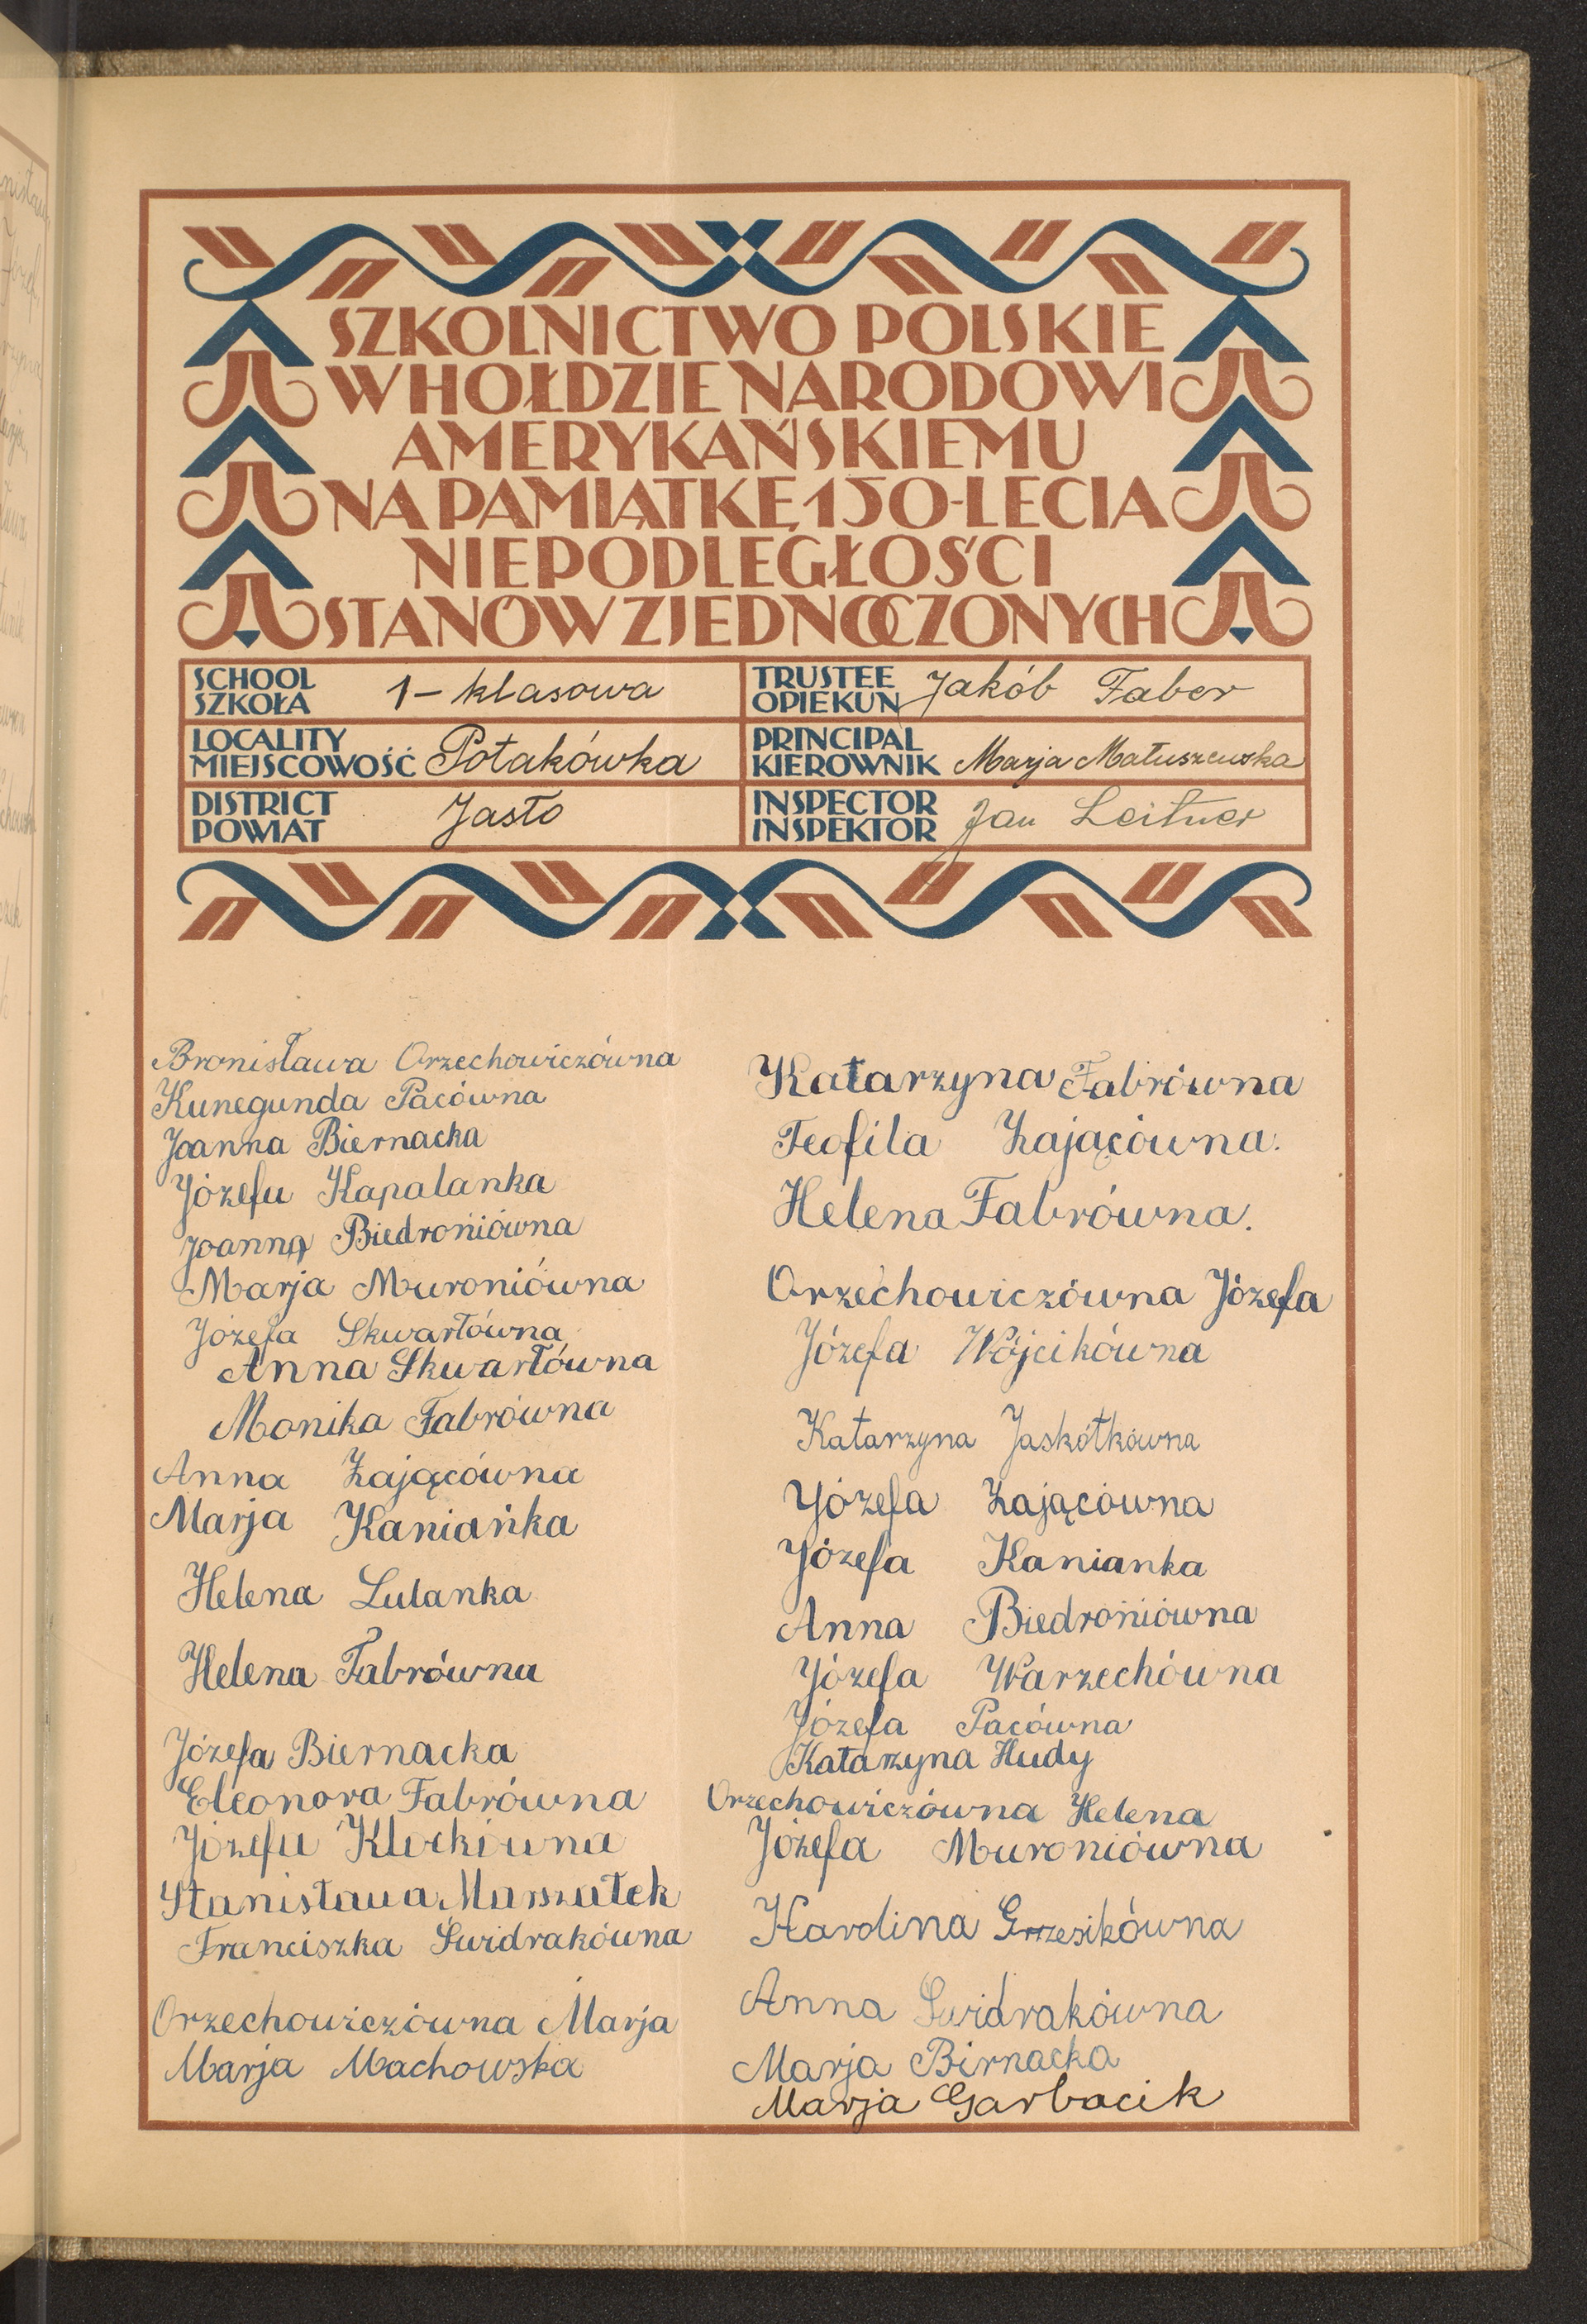 SZKOLNICTWO POLSKIE
W HOŁDZIE NARODOWI
AMERYKAŃSKIEMU
NA PAMIĄTKĘ 150-LECIA
NIEPODLEGŁOŚCI
STANÓW ZJEDNOCZONYCH
SCHOOL
SZKOŁA 1-klasowa
TRUSTEE
OPIEKUN Jakób Faber
LOCALITY
MIEJSCOWOŚĆ Potakówka
PRINCIPAL
KIEROWNIK Marja Matuszewska
DISTRICT
POWIAT Jasło
INSPECTOR
INSPEKTOR Jan Leitner
Bronisława Orzechowiczówna
Kunegunda Pacówna
Joanna Biernacka
Józefa Kapalanka
Joanna Biedroniówna
Marja Muroniówna
Józefa Skwarłówna
Anna Skwarłówna
Monika Fabrówna
Anna Zającówna
Marja Kaniańka
Helena Lulanka
Helena Fabrówna
Józefa Biernacka
Eleonora Fabrówna
Józefa Klockówna
Stanisława Marszałek
Franciszka Świdrakówna
Orzechowiczówna Marja
Marja Machowska
Katarzyna Fabrówna
Teofila Zającówna.
Helena Fabrówna.
Orzechowiczówna Józefa
Józefa Wójcikówna
Katarzyna Jaskółkówna
Józefa Zającówna
Józefa Kanianka
Anna Biedroniówna
Józefa Warzechówna
Józefa Pacówna
Katarzyna Hudy
Orzechowiczówna Helena
Józefa Muroniówna
Karolina Grzesikówna
Anna Świdrakówna
Marja Birnacka
Marja Garbacik